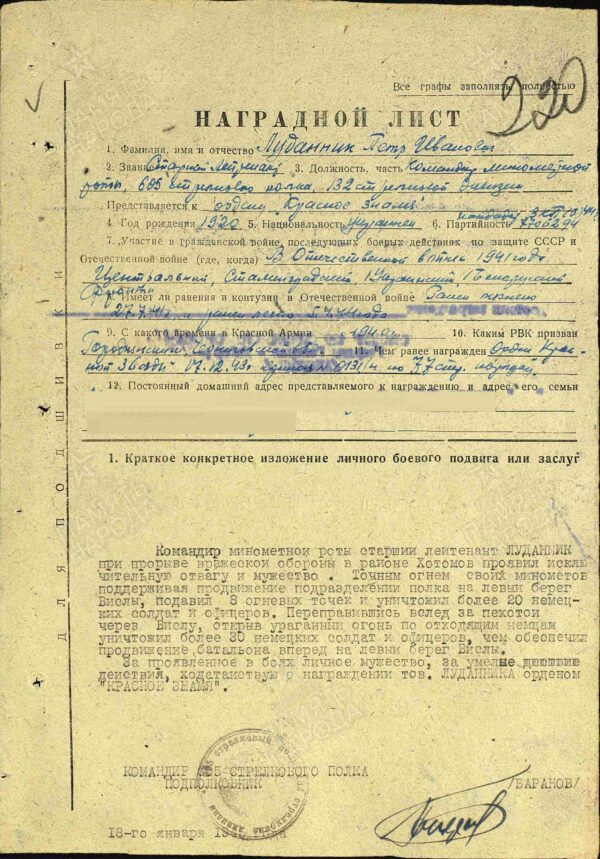 Все графы заполнять полностью
220
НАГРАДНОЙ ЛИСТ
1. Фамилия, имя и отчество Луданник Петр Иванович
2. Звание Старший Лейтенант 3. Должность, часть Командир минометной
роты, 605 стрелкового полка, 132 стрелковой дивизии
Представляется к ордену "Красное Знамя"
4. Год рождения 1920 5. Национальность Украинец 6. Партийность кандидат ВКП(б)
7. Участие в гражданской войне, последующих боевых действиях по защите СССР и
Отечественной войне (где, когда) В Отечественной войне 1941 года
Центральный, Сталинградский, 1 Украинский, 1 Белорусский
Фронты
8. Имеет ли ранения и контузии в Отечественной войне Ранен тяжело
27.7.41г. и ранен легко 5.4.44 года
9. С какого времени в Красной Армии 1940г. 10. Каким РВК призван
11. Чем ранее награжден Орден Крас-
ной Звезды
12. Постоянный домашний адрес представляемого к награждению и адрес его семьи
1. Краткое конкретное изложение личного боевого подвига или заслуг
Командир минометнои роты старшии леитенант ЛУДАННИК
при прорыве вражеской обороны в районе Хотомов проявил исклю
чительную отвагу и мужество . Точным огнем своих минометов
поддерживая продвижение подразделении полка на левыи берег
Вислы, подавил 8 огневых точек и уничтожил более 20 немец-
ких солдат и офицеров. Переправившись вслед за пехотои
через Вислу, открыв ураганныи огонь по отходящим немцам
уничтожил более 30 немецких солдат и офицеров, чем обеспечил
продвижение батальона вперед на левыи берег Вислы.
За проявленное в боях личное мужество, за умелые
деиствия, ходатаиствую о награждении тов. ЛУДАННИКА орденом
"КРАСНОЕ ЗНАМЯ".
КОМАНДИР 605 СТРЕЛКОВОГО ПОЛКА
ПОДПОЛКОВНИК /БАРАНОВ/
18-го января 1945 года
ДЛЯ ПОДШИВКИ